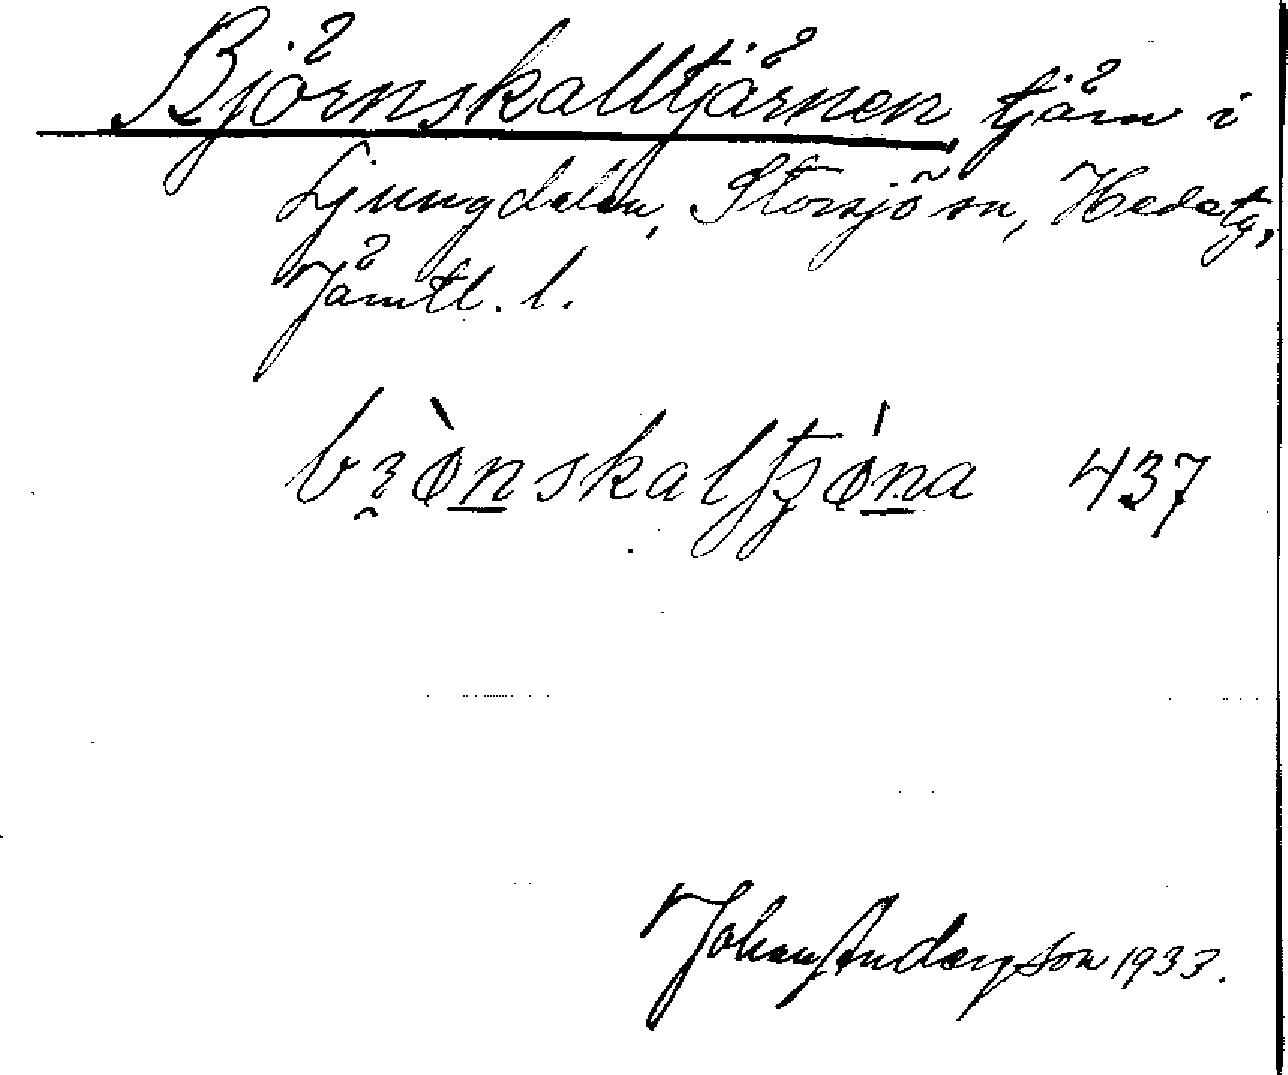 Björnskalltjärnen tjärn i
Ljungdalen, Storsjö sn, Hede tg,
Jämtl. l.
bʒø̀nskaltjǿna 437
Johan Anderson 1933.